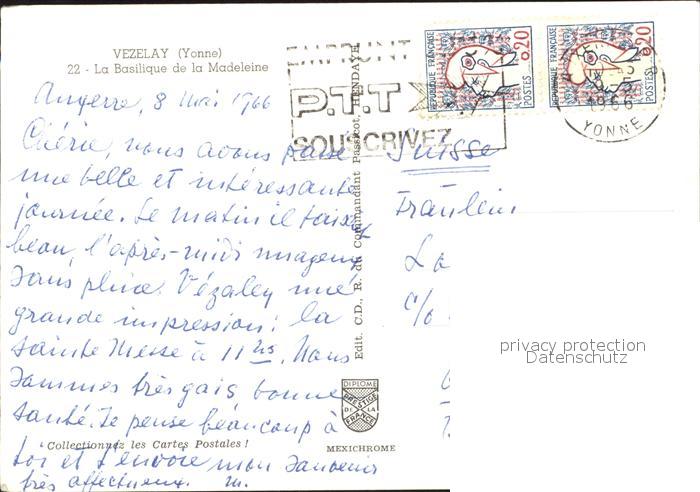 VEZELAY (Yonne)
22 - La Basilique de la Madeleine
Auxerre, 8 Mai 1966
Chérie, nous avons passé
une belle et intéressante
journée. Le matin il faisait
beau, l'après-midi nuageux
sans pluie. Vézelay une
grande impression: la
Sainte Messe à 11 hrs. Nous
sommes très gais, bonne
santé. Je pense beaucoup à
toi et t'envoie mon souvenir
très affectueux. M.
"Collectionnez les Cartes Postales !
MEXICHROME
Edit. C.D., R. du Commandant Passicot, HENDAYE
DIPLOME
PRESTIGE
DE LA
FRANCE
EMPRUNT
P.T.T
SOUSCRIVEZ
REPUBLIQUE FRANÇAISE
0,20
POSTES
REPUBLIQUE FRANÇAISE
0,20
POSTES
1966
YONNE
Suisse
Fräulein
c/o
privacy protection
Datenschutz